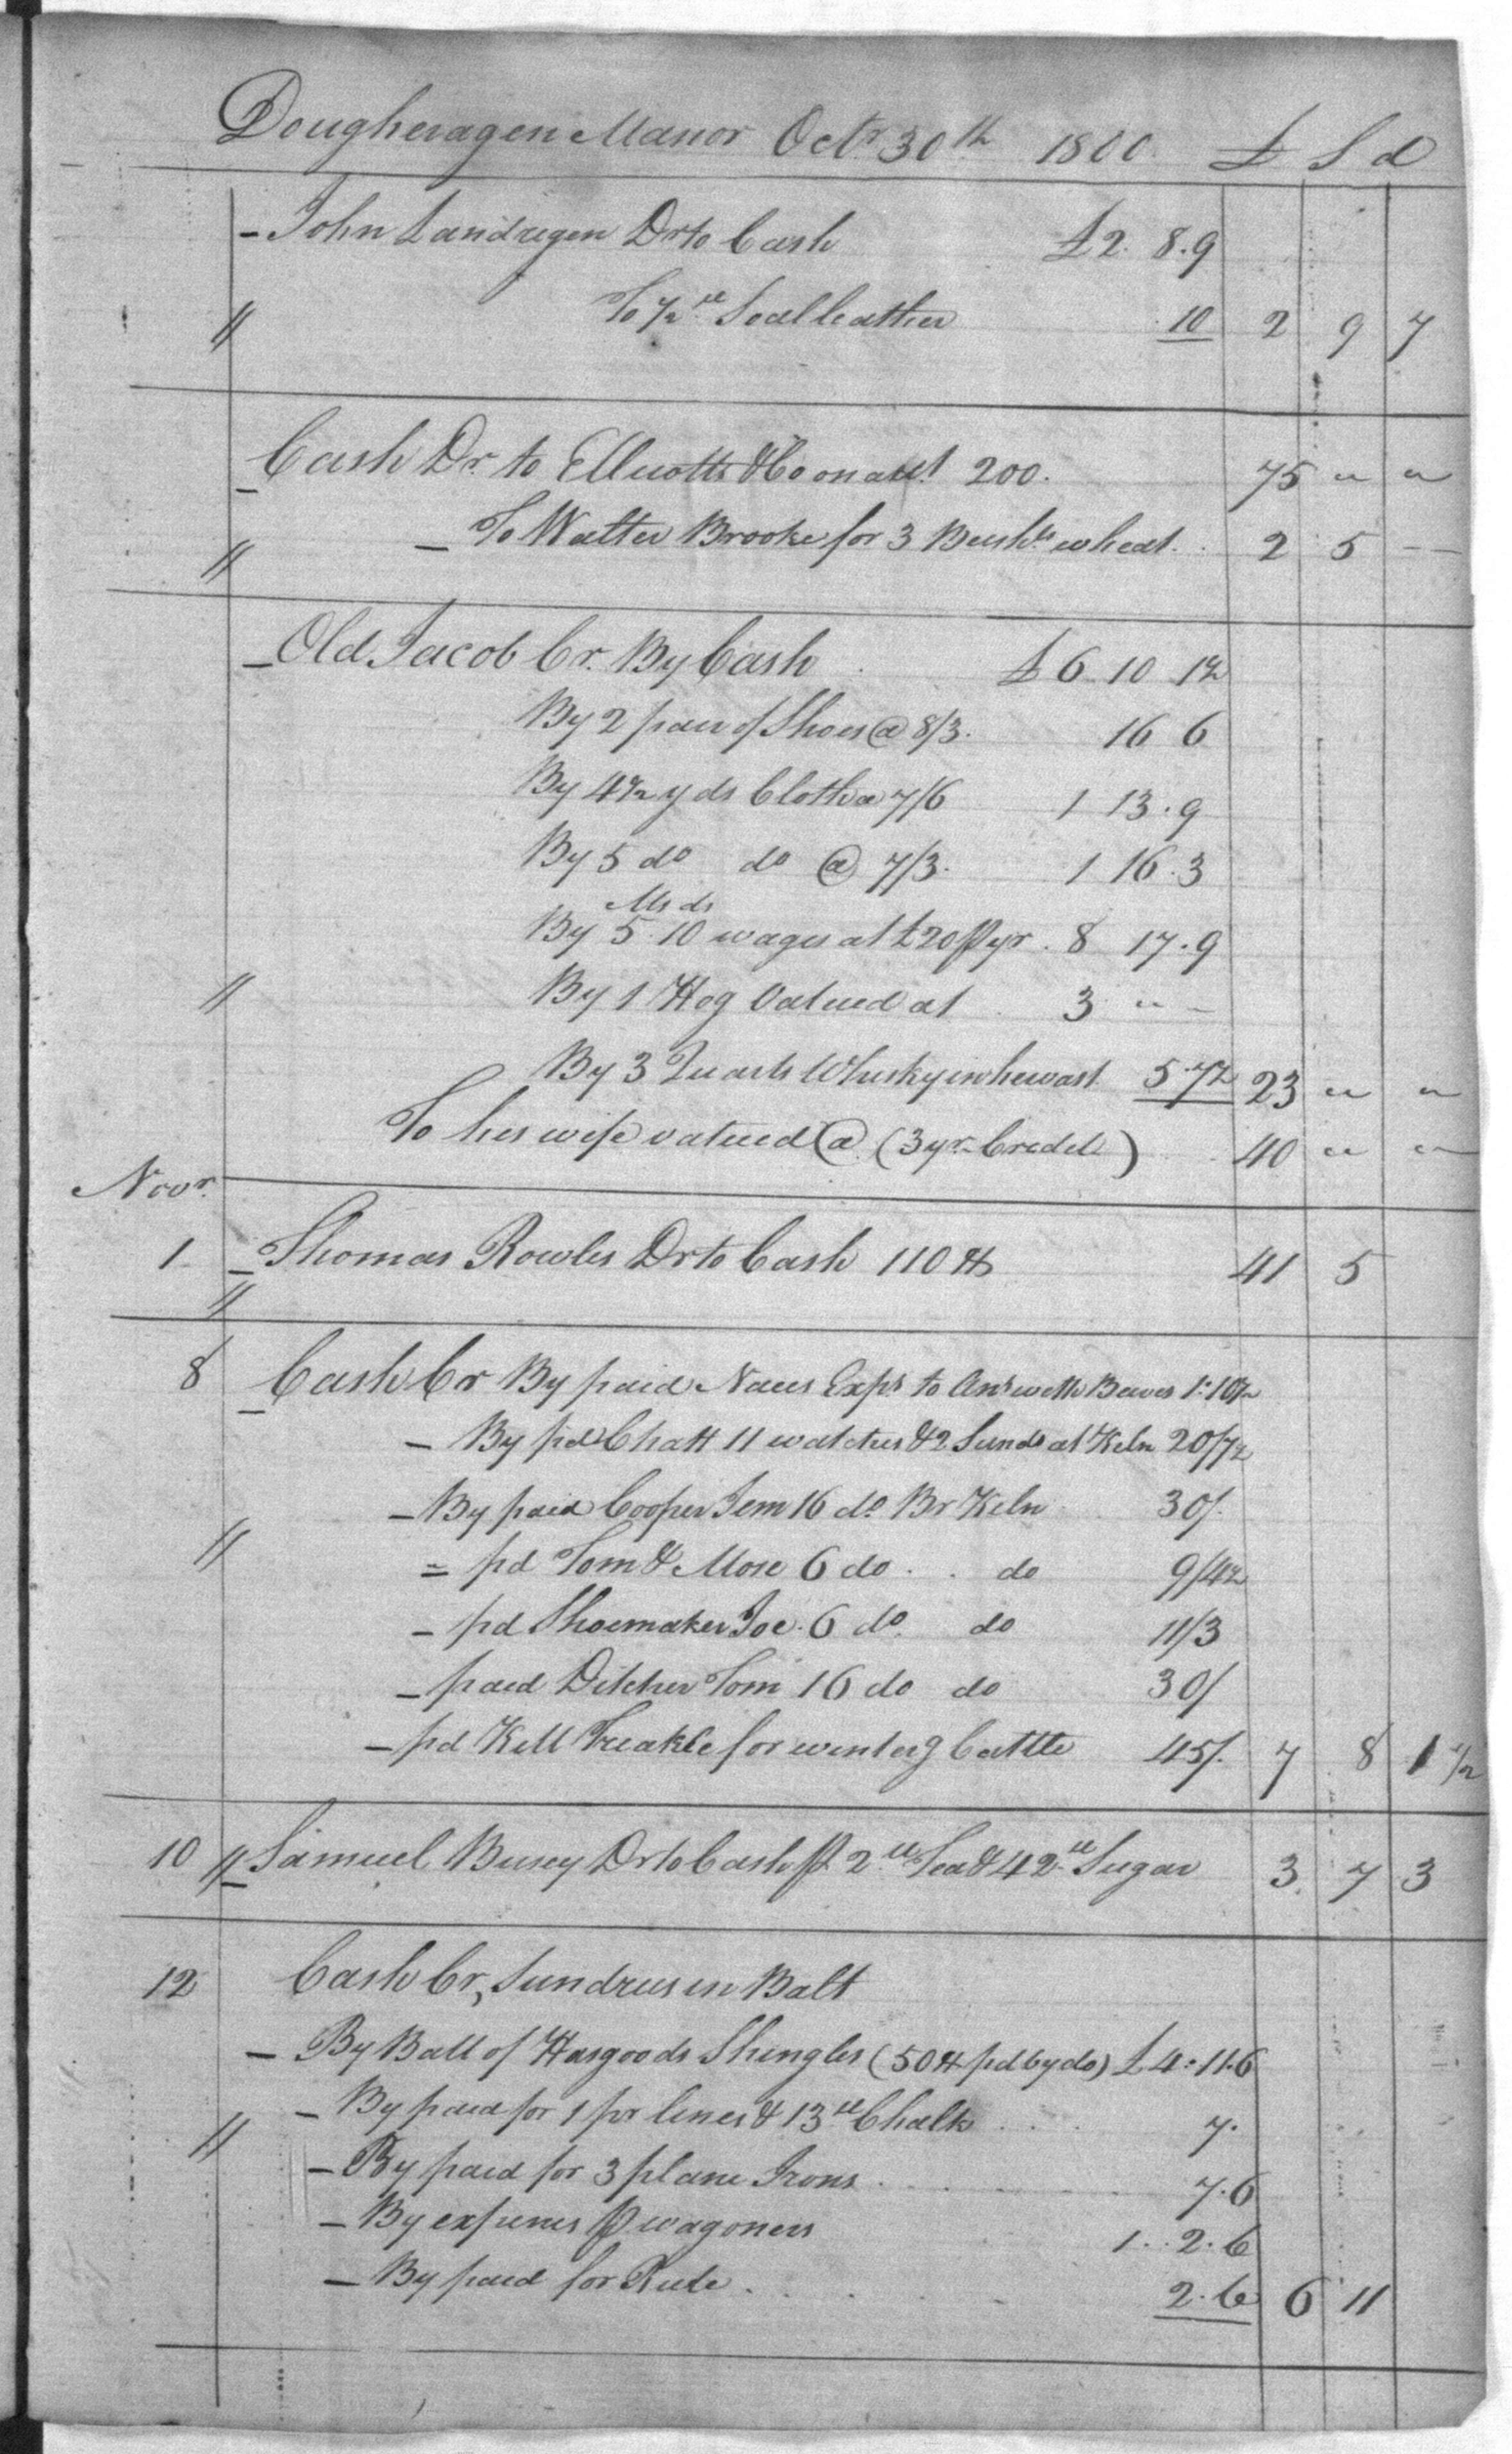 Dougheragen Manor Octr 30th 1800 £ S d
- John Landregen Dr to Cash £2. 8. 9
// To 1/2 ll Soal leather 10 2 9 7
Cash Dr. to Ellicotts & Co on acct 200. 75 " "
// - To Walter Brooke for 3 Bushls wheat. 2 5 --
- Old Jacob Cr. By Cash £6 10 1 1/2
By 2 pair of Shoes @ 8/3. 16 6
By 4 1/2 yds Cloth @ 7/6 1 13. 9
By 5 do do @ 7/3. 1 16. 3
Ms ds
By 5. 10 wages at £20 p yr. 8 17. 9
// By 1 Hog Valued at 3 " -
By 3 Quarts Whisky in hervast 5. 7 1/2 23 " "
To his wife valued @ (3 yr. Credit) 40 " "
Novr.
1 - Thomas Rowles Dr to Cash 110 $ 41 5
//
8 Cash Cr By paid Naces Exps to Ans with Beeves 1: 10 1/2
- By pd Chatt 11 watches & 2 Sunds at Keln 20/7 1/2
- By paid Cooper Jem 16 do Br Keln 30/.
// = pd Tom & Mose 6 do . . do 9/4 1/2
- pd Shoemaker Joe. 6 do. do 11/3
- paid Ditcher Tom 16 do do 30/
- pd Kell for winterg Cattle 45/. 7 8 1 1/2
10 // Samuel Busey Dr to Cash p 2 ll Tea & 42 ll Sugar 3. 7 3
12 Cash Cr, Sundries in Balt
- By Ball of Hasgoods Shingles (50 $ pd by do) £4: 11. 6
- By paid for 1 pr lines & 13 ll Chalk . . . 7.
// - By paid for 3 plane Irons . . . 7. 6
- By expenses p wagoners 1. . 2. 6
- By paid for Rule . . . 2. 6 6 11